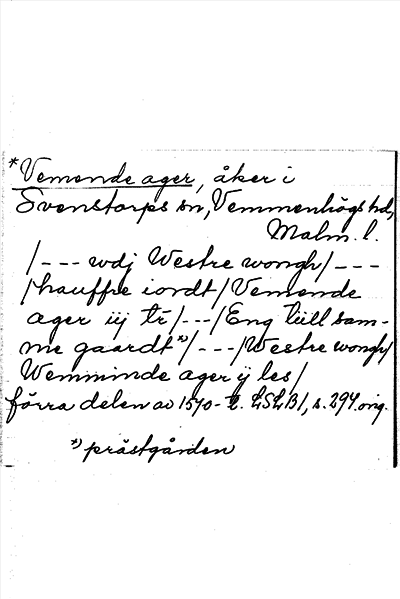 *Vemende ager, åker i
Svenstorps sn, Vemmenhögs hd,
Malm. l.
/--- wdj Westre wongh/---
/hauffre iordt/Vemende
ager iij tr/---/Eng tiill sam-
me gaardt*)/---/Westre wongh/
Wemminde ager ij les/
förra delen av 1570-t. LSLB1, s. 294 orig.
*) prästgården